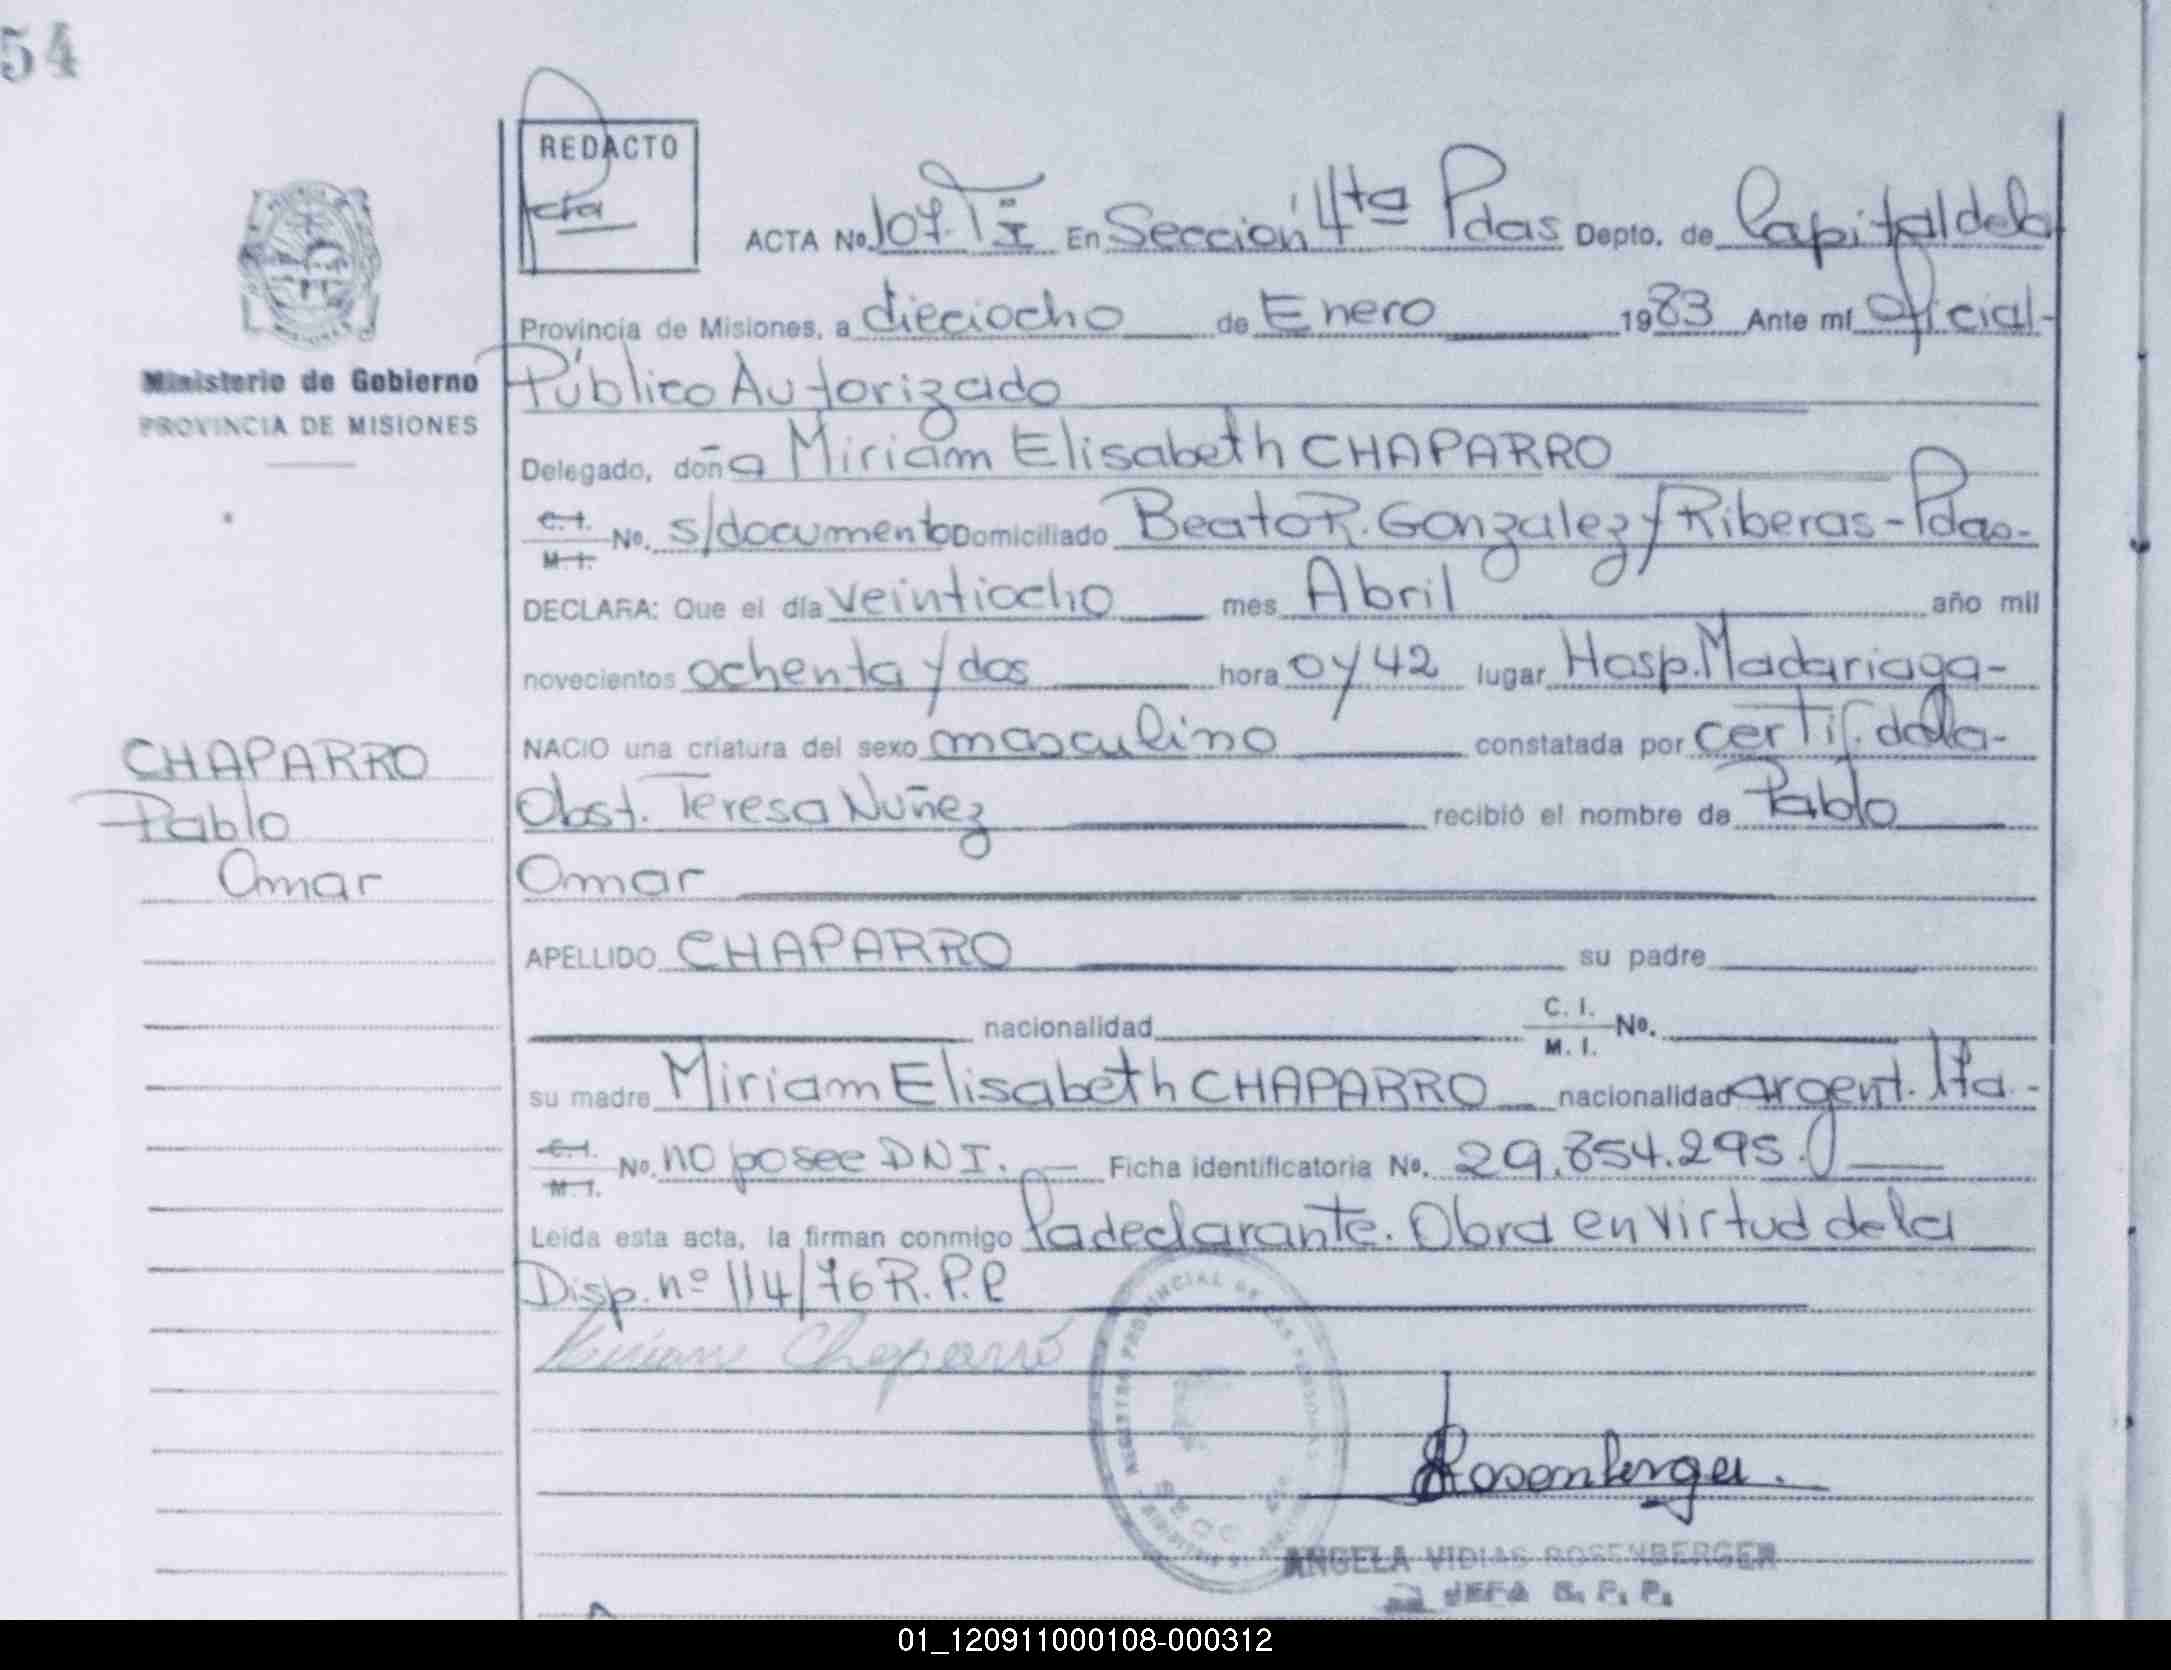 54
REDACTO
cta
ACTA No. 107. T I En Sección 4ta Pdas Depto. de Capital de la
Provincia de Misiones, a dieciocho de Enero 1983 Ante mí Oficial-
Ministerio de Gobierno
PROVINCIA DE MISIONES
Público Autorizado
Delegado, doña Miriam Elisabeth CHAPARRO
C.I. M.I. No. s/documento Domiciliado Beato R. Gonzalez y Riberas - Pdas-
DECLARA: Que el día veintiocho mes Abril año mil
novecientos ochenta y dos hora 0 y 42 lugar Hosp. Madariaga-
NACIO una criatura del sexo masculino constatada por certif. de la-
CHAPARRO
Pablo
Omar
Obst. Teresa Nuñez recibió el nombre de Pablo
Omar
APELLIDO CHAPARRO su padre
nacionalidad C. I. M. I. No.
su madre Miriam Elisabeth CHAPARRO nacionalidad argent. Ita.-
C.I. M.I. No. no posee DNI. Ficha identificatoria No. 29.854.295.
Leída esta acta, la firman conmigo la declarante. Obra en virtud de la
Disp. nº 114/76 R.P.P
Miriam Chaparro
REGISTRO PROVINCIAL DE LAS PERSONAS
Rosenberger.
ANGELA VIDIAS ROSENBERGER
JEFA R. P. P.
01_120911000108-000312